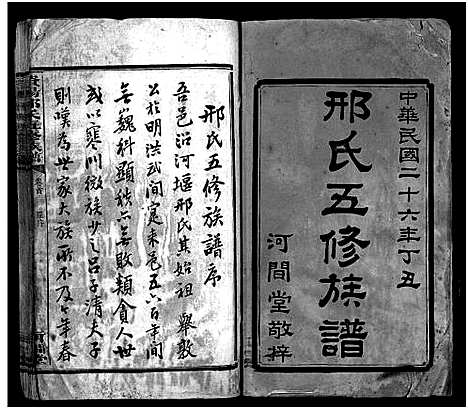 中華民國二十六年丁丑
邢氏五修族譜
河間堂敬梓
邢氏五修族譜序
吾邑沿河堰邢氏其始祖 舉敦
公於明洪武間寔來毛五六百年間
無巍科顯族亦無敗類食人世
或以寒門微族少之呂子清夫子
則嘆為世家大族所不及今年春